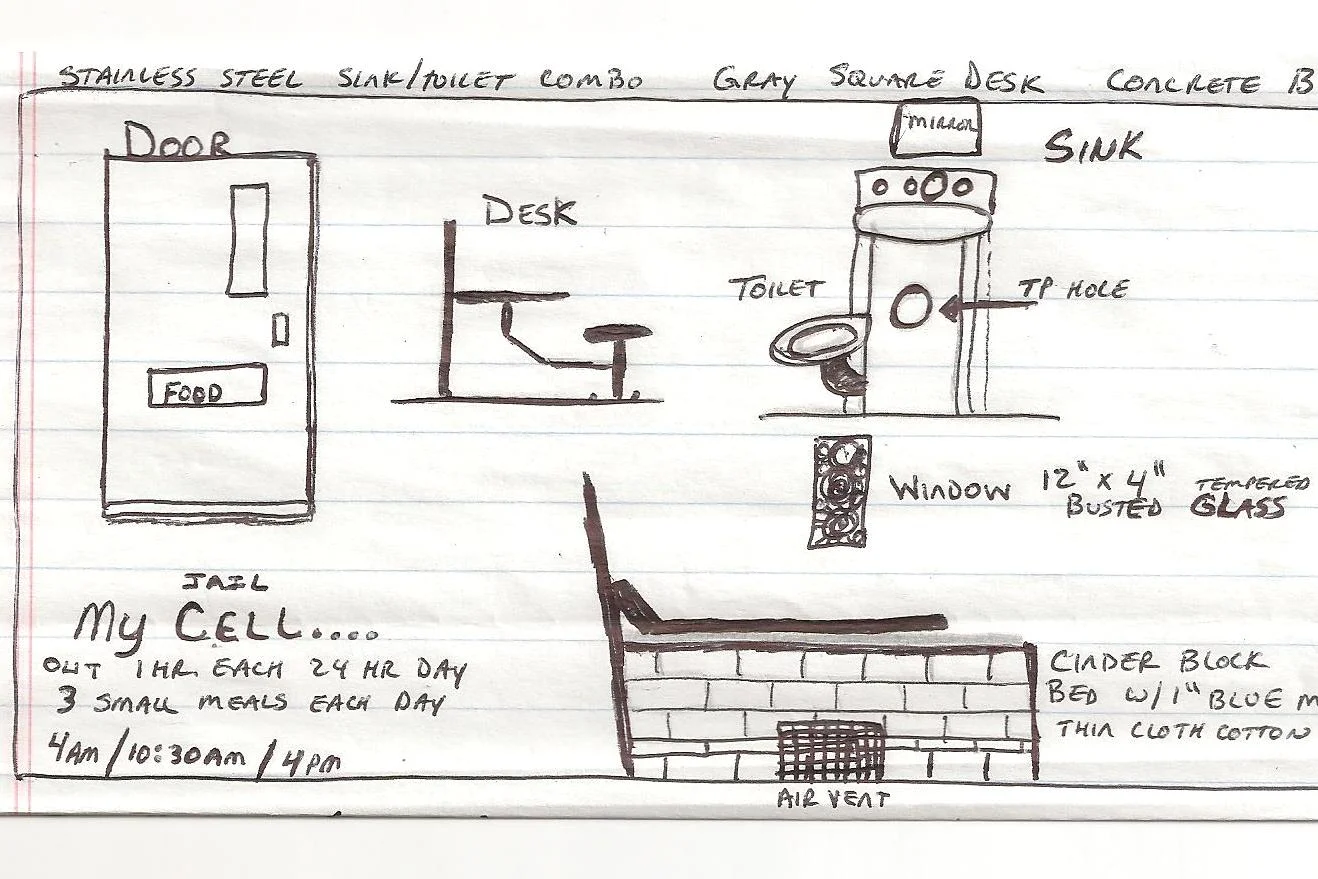 STAINLESS STEEL SINK/TOILET COMBO GRAY SQUARE DESK CONCRETE B
DOOR
FOOD
DESK
MIRROR
SINK
TOILET
TP HOLE
WINDOW 12" x 4" TEMPERED
BUSTED GLASS
JAIL
My CELL....
OUT 1 HR. EACH 24 HR DAY
3 SMALL MEALS EACH DAY
4AM/10:30AM/4PM
CINDER BLOCK
BED W/1" BLUE M
THIN CLOTH COTTON
AIR VENT